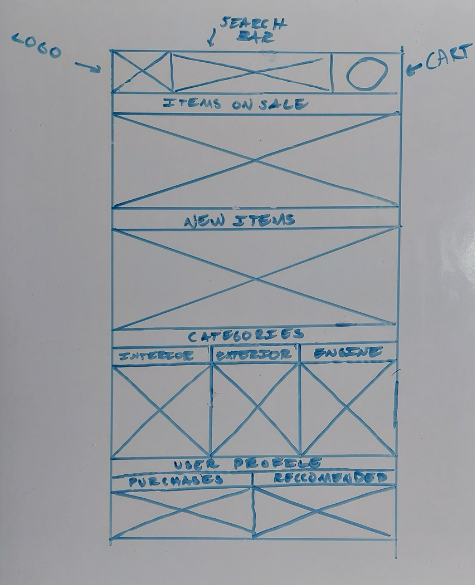 SEARCH
BAR
LOGO
CART
ITEMS ON SALE
NEW ITEMS
CATEGORIES
INTERIOR EXTERIOR ENGINE
USER PROFILE
PURCHASES RECCOMENDED